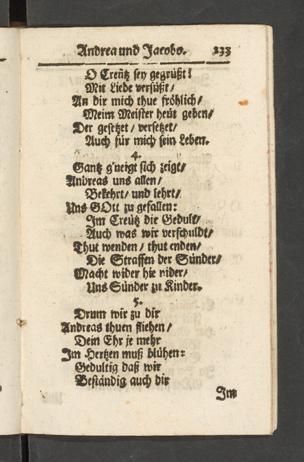 Andrea und Jacobo. 233
O Creütz sey gegrüßt!
Mit Liebe versüßt/
An dir mich thue fröhlich/
Mein Meister heüt geben/
Der gesetzet/ versetzet/
Auch für mich sein Leben.
4.
Gantz g'neigt sich zeigt/
Andreas uns allen/
Bekehrt/ und lehrt/
Uns GOtt zu gefallen:
Im Creütz die Gedult/
Auch was wir verschuldt/
Thut wenden/ thut enden/
Die Straffen der Sünder/
Macht wider hie nider/
Uns Sünder zu Kinder.
5.
Drum wir zu dir
Andreas thuen fliehen/
Dein Ehr je mehr
Im Hertzen muß blühen:
Gedultig daß wir
Beständig auch dir
Im